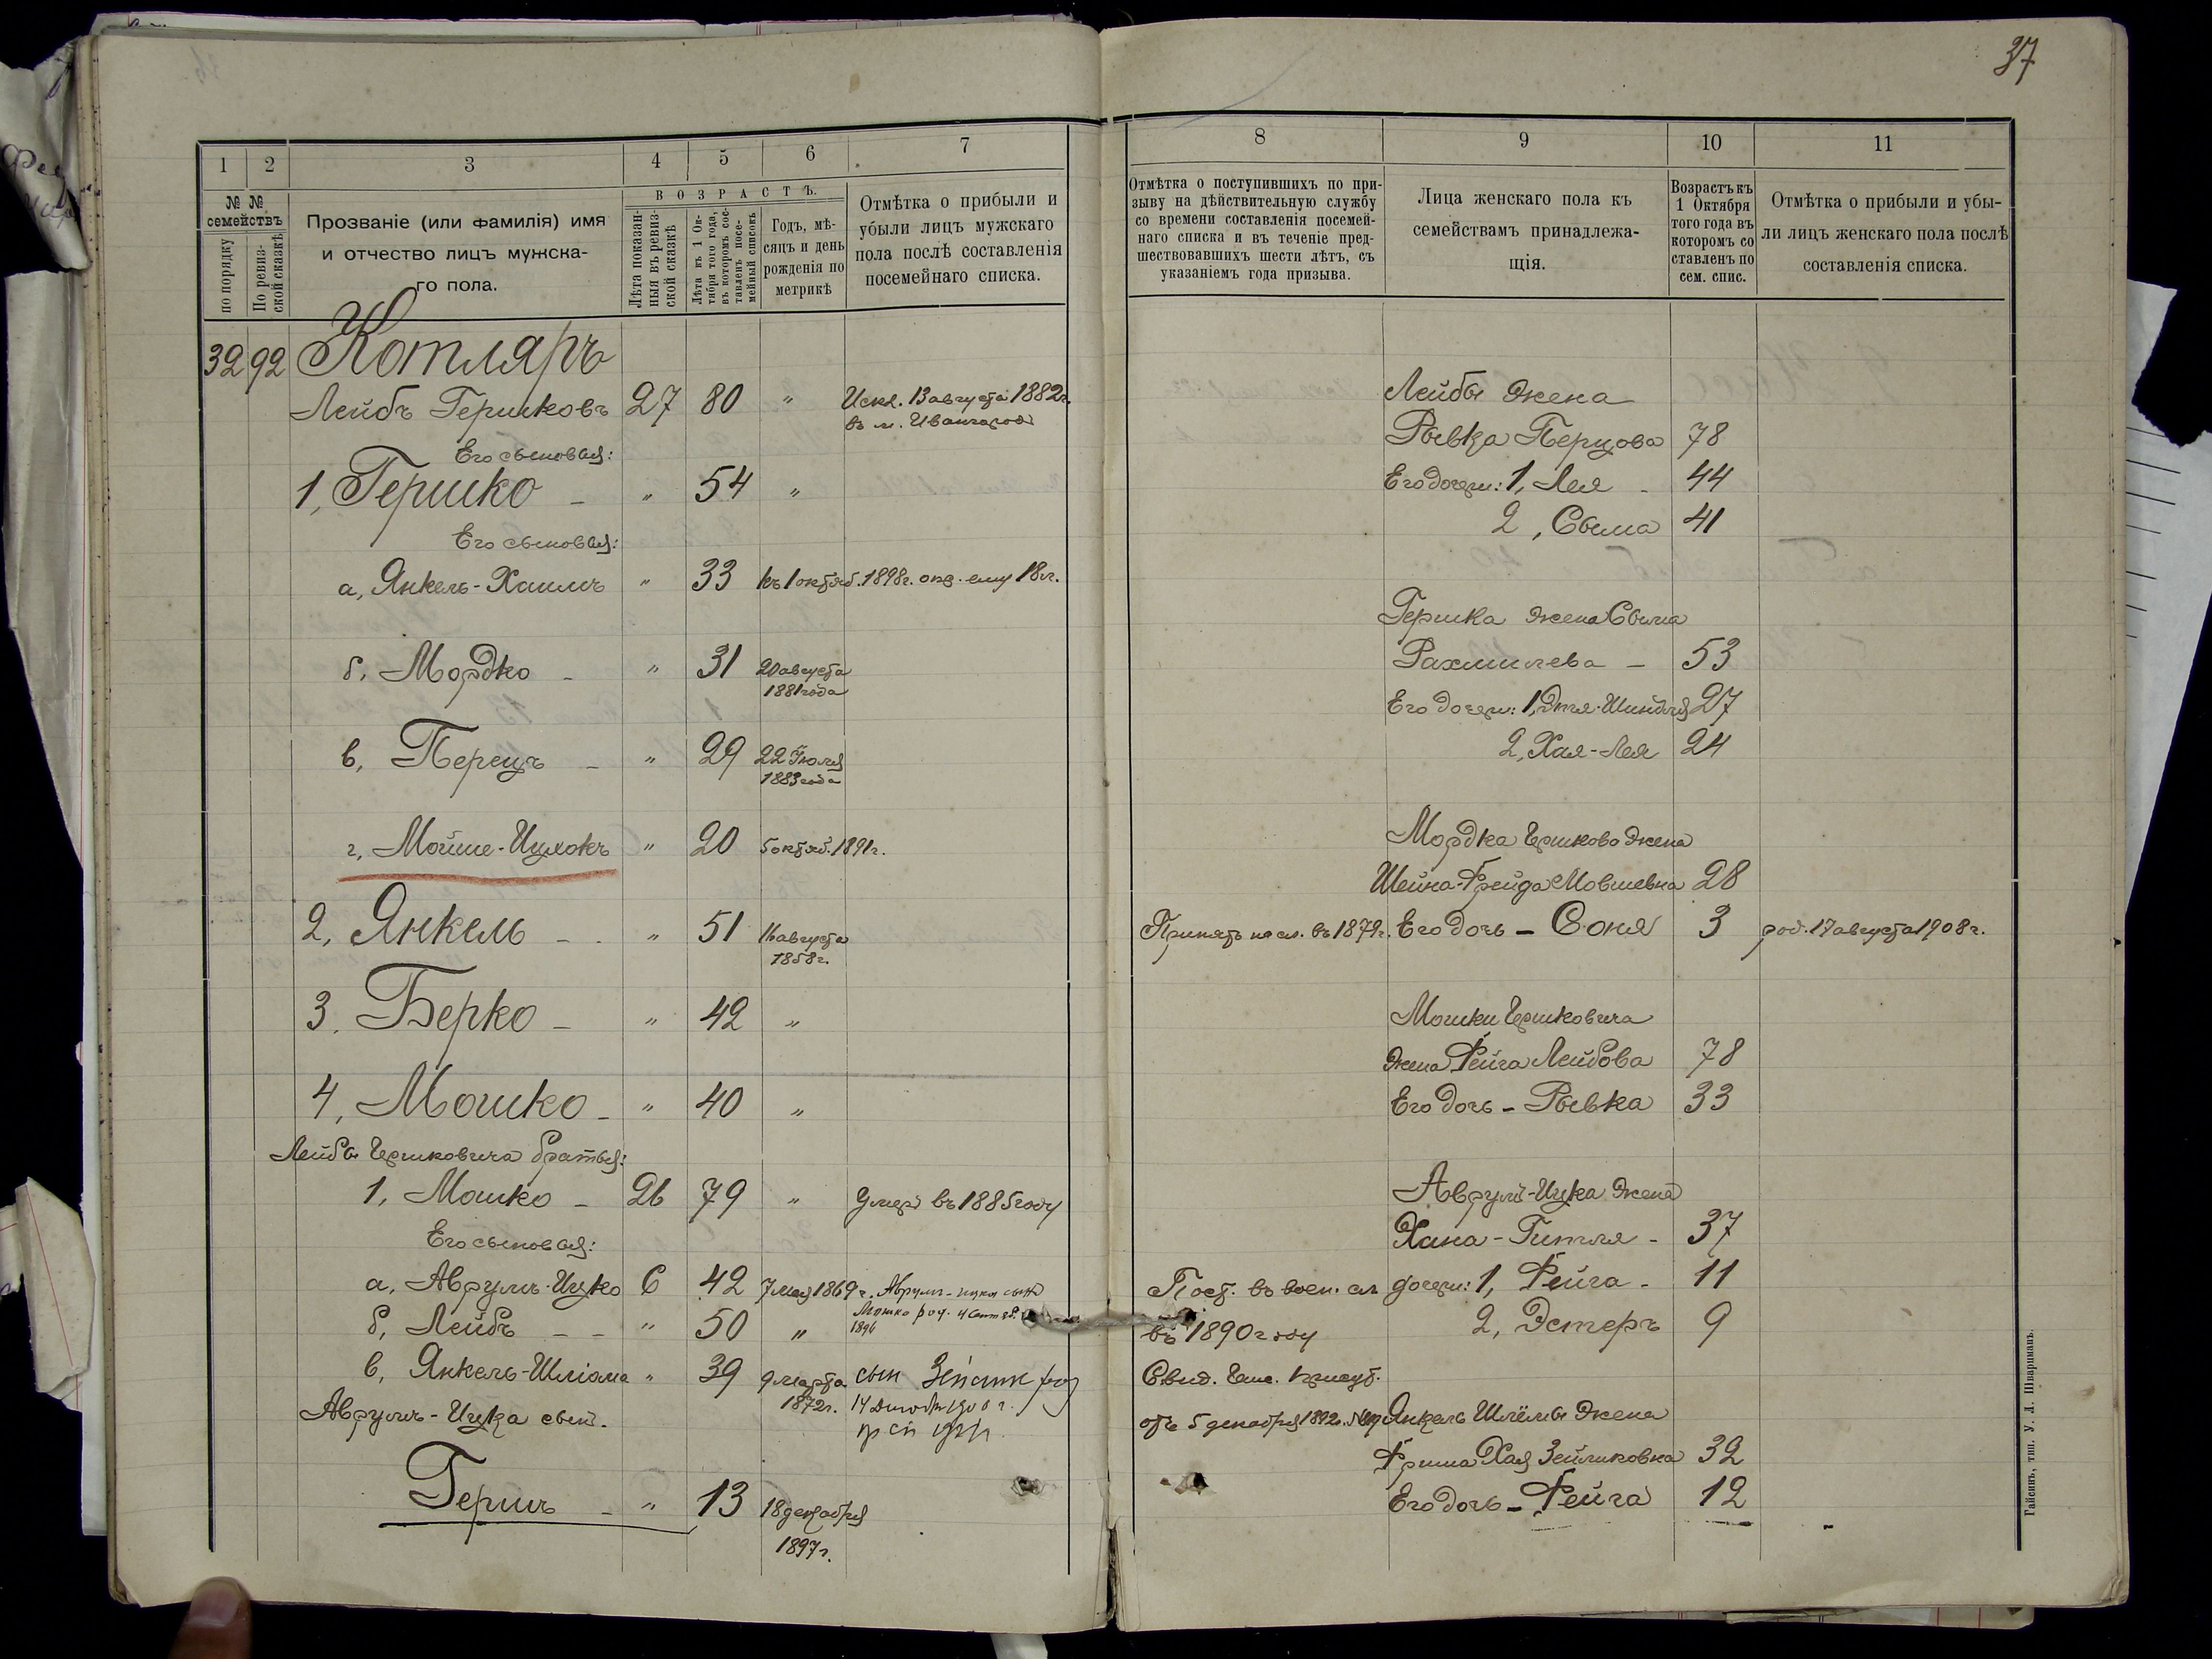 37
1
2
3
4
5
6
7
№ №
семействъ
по порядку
По ревиз-
ской сказкѣ
Прозваніе (или фамилія) имя
и отчество лицъ мужска-
го пола.
ВОЗРАСТЪ.
Лѣта показан-
ныя въ ревиз-
ской сказкѣ
Лѣта къ 1 Ок-
тября того года,
въ которомъ сос-
тавленъ посе-
мейный списокъ
Годъ, мѣ-
сяцъ и день
рожденія по
метрикѣ
Отмѣтка о прибыли и
убыли лицъ мужскаго
пола послѣ составленія
посемейнаго списка.
32 92 Котляръ
Лейбъ Гершковъ 27 80 " Искл. 13 августа 1882 г.
въ м. Ивангород
Его сыновья:
1, Гершко - " 54 "
Его сыновья:
а, Янкель-Хаимъ " 33 къ 1 октяб. 1898 г. опр. ему 18 л.
б, Мордко - " 31 20 августа
1881 года
в, Перецъ - " 29 22 Іюля
1883 года
г, Мойше-Ицхокъ " 20 5 октяб. 1891 г.
2, Янкель - - " 51 16 августа
1858 г.
3. Берко - " 42 "
4, Мошко - " 40 "
Лейбы Гершковича братья:
1, Мошко - 26 79 " Умеръ въ 1885 году
Его сыновья:
а, Аврумъ-Ицко 6 42 7 мая 1869 г. Аврумъ-ицки сынъ
Мошко род. 4 Сент
1896
б, Лейбъ - - " 50 "
в, Янкель-Шліома " 39 9 марта
1872 г.
сын
14
Аврумъ-Ицка сынъ.
Гершъ - " 13 18 декабря
1897 г.
8
9
10
11
Отмѣтка о поступившихъ по при-
зыву на дѣйствительную службу
со времени составленія посемей-
наго списка и въ теченіе пред-
шествовавшихъ шести лѣтъ, съ
указаніемъ года призыва.
Лица женскаго пола къ
семействамъ принадлежа-
щія.
Возрастъ къ
1 Октября
того года въ
которомъ со
ставленъ по
сем. спис.
Отмѣтка о прибыли и убы-
ли лицъ женскаго пола послѣ
составленія списка.
Лейбы жена
Рывка Перцова 78
Его дочери: 1, Лея - 44
2, Сыма 41
Гершка жена Сыма
Рахмилева - 53
Его дочери: 1, Этя-Шиндля 27
2, Хая-Лея 24
Мордка Гершкова жена
Шейна-Фрейда Мовшевна 28
Принятъ на сл. въ 1879 г. Его дочь - Соня 3 род. 17 августа 1908 г.
Мошки Гершковича
жена Фейга Лейбова 78
Его дочь - Рывка 33
Аврумъ-Ицка жена
Хана-Гитля - 37
Пост. въ воен. сл дочери: 1, Фейга - 11
въ 1890 году 2, Эстеръ 9
Свид. Гайс. присут.
отъ 5 декабря 1892 г. Янкель Шлёмы жена
Фрима Хая Зейликовна 32
Его дочь - Фейга 12
Гайсинъ, тип. У. Л. Шварцманъ.